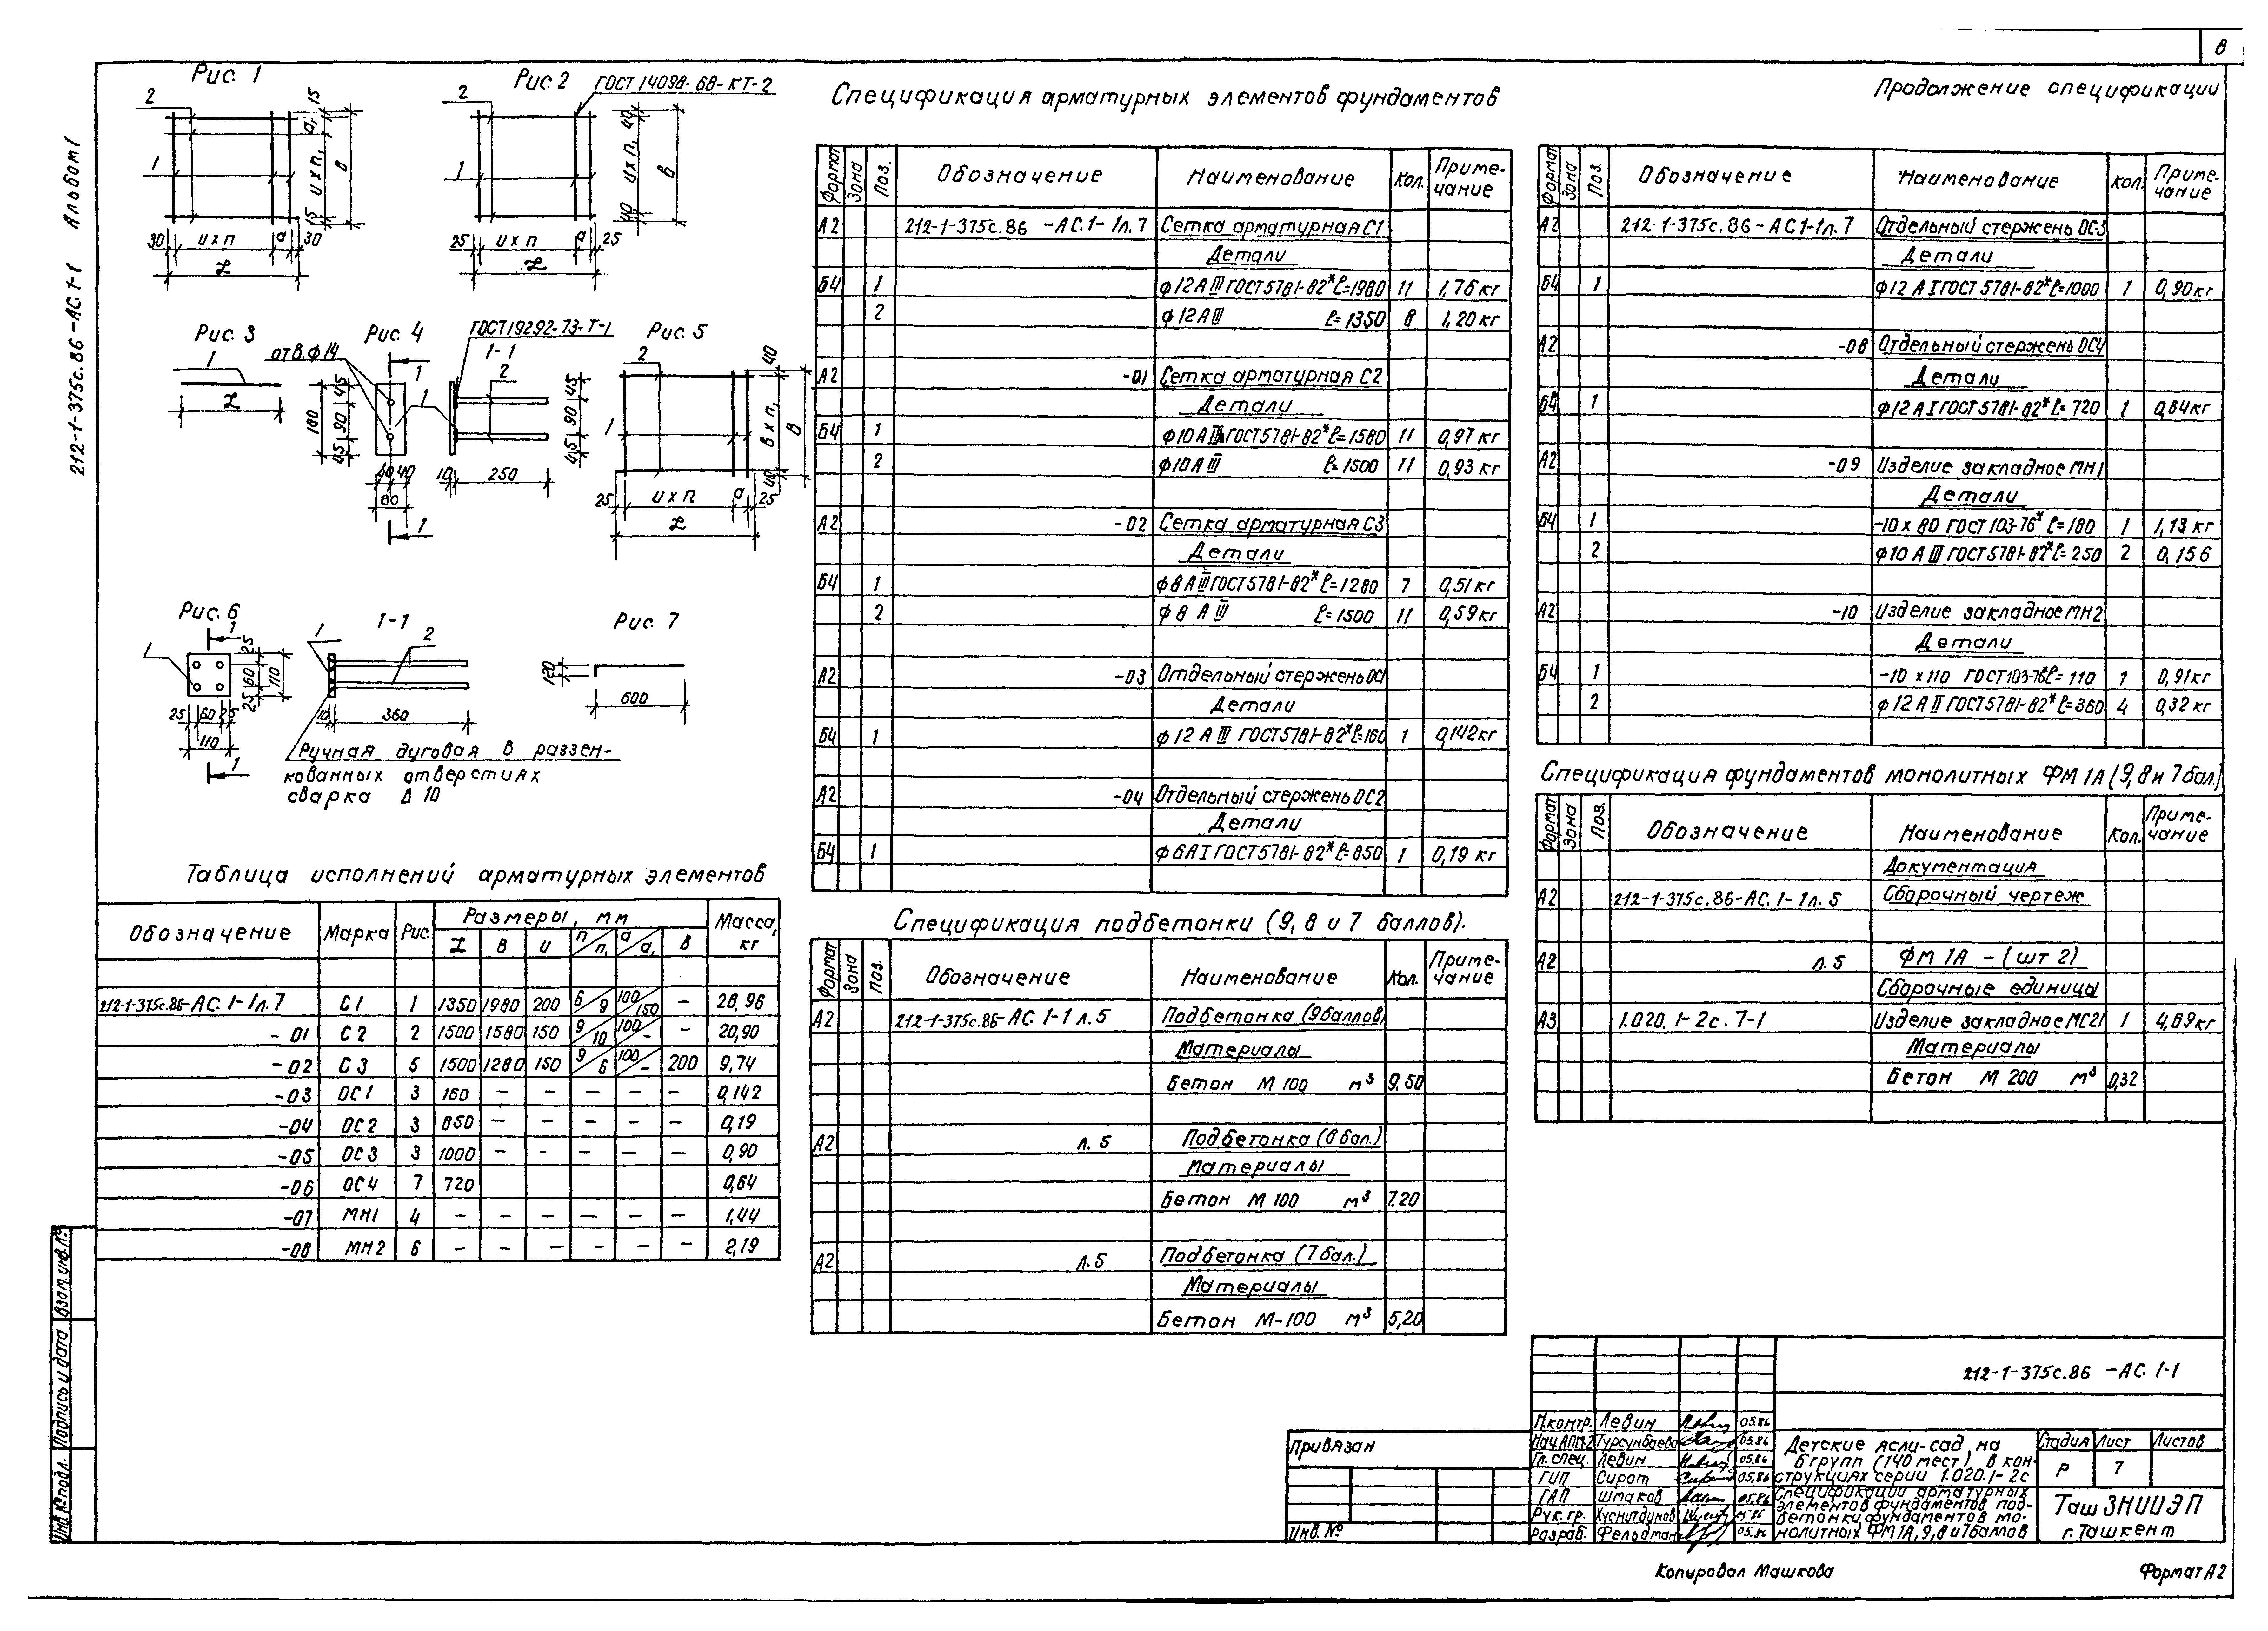 8
212-1-375с.86 -АС.1-1 Альбом 1
Рис. 1
2
1
15
а₁
и х п₁
15
в
30
и х п
а
30
L
Рис. 2
ГОСТ 14098-68-КТ-2
2
1
40
и х п₁
40
в
25
и х п
а
25
L
Рис. 3
1
L
Рис. 4
отв.ф14
1
180
45
90
45
40
40
80
1
1
ГОСТ 19292-73-Т-1
1-1
2
45
90
45
10
250
Рис. 5
2
1
40
в х п₁
40
в
25
и х п
а
25
L
Рис. 6
1
1
25
60
25
110
25
60
25
110
1
1-1
1
2
10
360
Ручная дуговая в раззен-
кованных отверстиях
сварка Δ 10
Рис. 7
120
600
Таблица исполнений арматурных элементов
Обозначение Марка Рис. Размеры, мм Масса, кг
L В и п/п₁ а/а₁ в
212-1-375с.86-АС.1-1л.7 С1 1 1350 1980 200 6/9 100/150 – 28,96
-01 С2 2 1500 1580 150 9/10 100/– – 20,90
-02 С3 5 1500 1280 150 9/6 100/– 200 9,74
-03 ОС1 3 160 – – – – – 0,142
-04 ОС2 3 850 – – – – – 0,19
-05 ОС3 3 1000 – – – – – 0,90
-06 ОС4 7 720 0,64
-07 МН1 4 – – – – – – 1,44
-08 МН2 6 – – – – – – 2,19
Спецификация арматурных элементов фундаментов
Формат Зона Поз. Обозначение Наименование Кол. Приме-чание
А2 212-1-375с.86 -АС.1-1л.7 Сетка арматурная С1
Детали
Б4 1 ф12АIII ГОСТ5781-82* ℓ=1980 11 1,76 кг
2 ф12АIII ℓ=1350 8 1,20 кг
А2 -01 Сетка арматурная С2
Детали
Б4 1 ф10АIII ГОСТ5781-82* ℓ=1580 11 0,97 кг
2 ф10АIII ℓ=1500 11 0,93 кг
А2 -02 Сетка арматурная С3
Детали
Б4 1 ф8АIII ГОСТ5781-82* ℓ=1280 7 0,51 кг
2 ф8 АIII ℓ=1500 11 0,59 кг
А2 -03 Отдельный стержень ОС1
Детали
Б4 1 ф12 АIII ГОСТ5781-82* ℓ=160 1 0,142 кг
А2 -04 Отдельный стержень ОС2
Детали
Б4 1 ф6АI ГОСТ5781-82* ℓ=850 1 0,19 кг
Спецификация подбетонки (9, 8 и 7 баллов).
Формат Зона Поз. Обозначение Наименование Кол. Приме-чание
А2 212-1-375с.86-АС.1-1 л.5 Подбетонка (9баллов)
Материалы
Бетон М 100 м³ 9.50
А2 л.5 Подбетонка (8 бал.)
Материалы
Бетон М 100 м³ 7.20
А2 л.5 Подбетонка (7 бал.)
Материалы
Бетон М-100 м³ 5,20
Продолжение спецификации
Формат Зона Поз. Обозначение Наименование Кол. Приме-чание
А2 212-1-375с.86-АС1-1л.7 Отдельный стержень ОС3
Детали
Б4 1 ф12 АI ГОСТ 5781-82* ℓ=1000 1 0,90кг
А2 -08 Отдельный стержень ОС4
Детали
Б4 1 ф12АI ГОСТ5781-82* ℓ=720 1 0,64кг
А2 -09 Изделие закладное МН1
Детали
Б4 1 -10 х 80 ГОСТ 103-76* ℓ=180 1 1,13 кг
2 ф10 АIII ГОСТ5781-82* ℓ=250 2 0,156
А2 -10 Изделие закладное МН2
Детали
Б4 1 -10 х110 ГОСТ103-76* ℓ=110 1 0,91кг
2 ф12 АII ГОСТ5781-82* ℓ=360 4 0,32 кг
Спецификация фундаментов монолитных ФМ 1А (9, 8 и 7 бал.)
Формат Зона Поз. Обозначение Наименование Кол. Приме-чание
Документация
А2 212-1-375с.86-АС.1-1л.5 Сборочный чертеж
А2 л.5 ФМ 1А - (шт 2)
Сборочные единицы
А3 1.020.1-2с.7-1 Изделие закладное МС21 1 4,69кг
Материалы
Бетон М 200 м³ 0,32
212-1-375с.86 -АС.1-1
Н.контр. Левин 05.86
Нач.АПМ-2 Турсунбаева 05.86
Гл.спец. Левин 05.86
ГИП Сират 05.86
ГАП Шмаков 05.86
Рук.гр. Хуснитдинов 05.86
Разраб. Фельдман 05.86
Детские ясли-сад на
6групп (140 мест) в кон-
струкциях серии 1.020.1-2с
Стадия Лист Листов
Р 7
Спецификации арматурных
элементов фундаментов под-
бетонки фундаментов мо-
нолитных ФМ1А, 9,8 и 7баллов
ТашЗНИИЭП
г.Ташкент
Привязан
Инв. №
Взам.инв.№
Подпись и дата
Инв.№подл.
Копировал Машкова
Формат А2